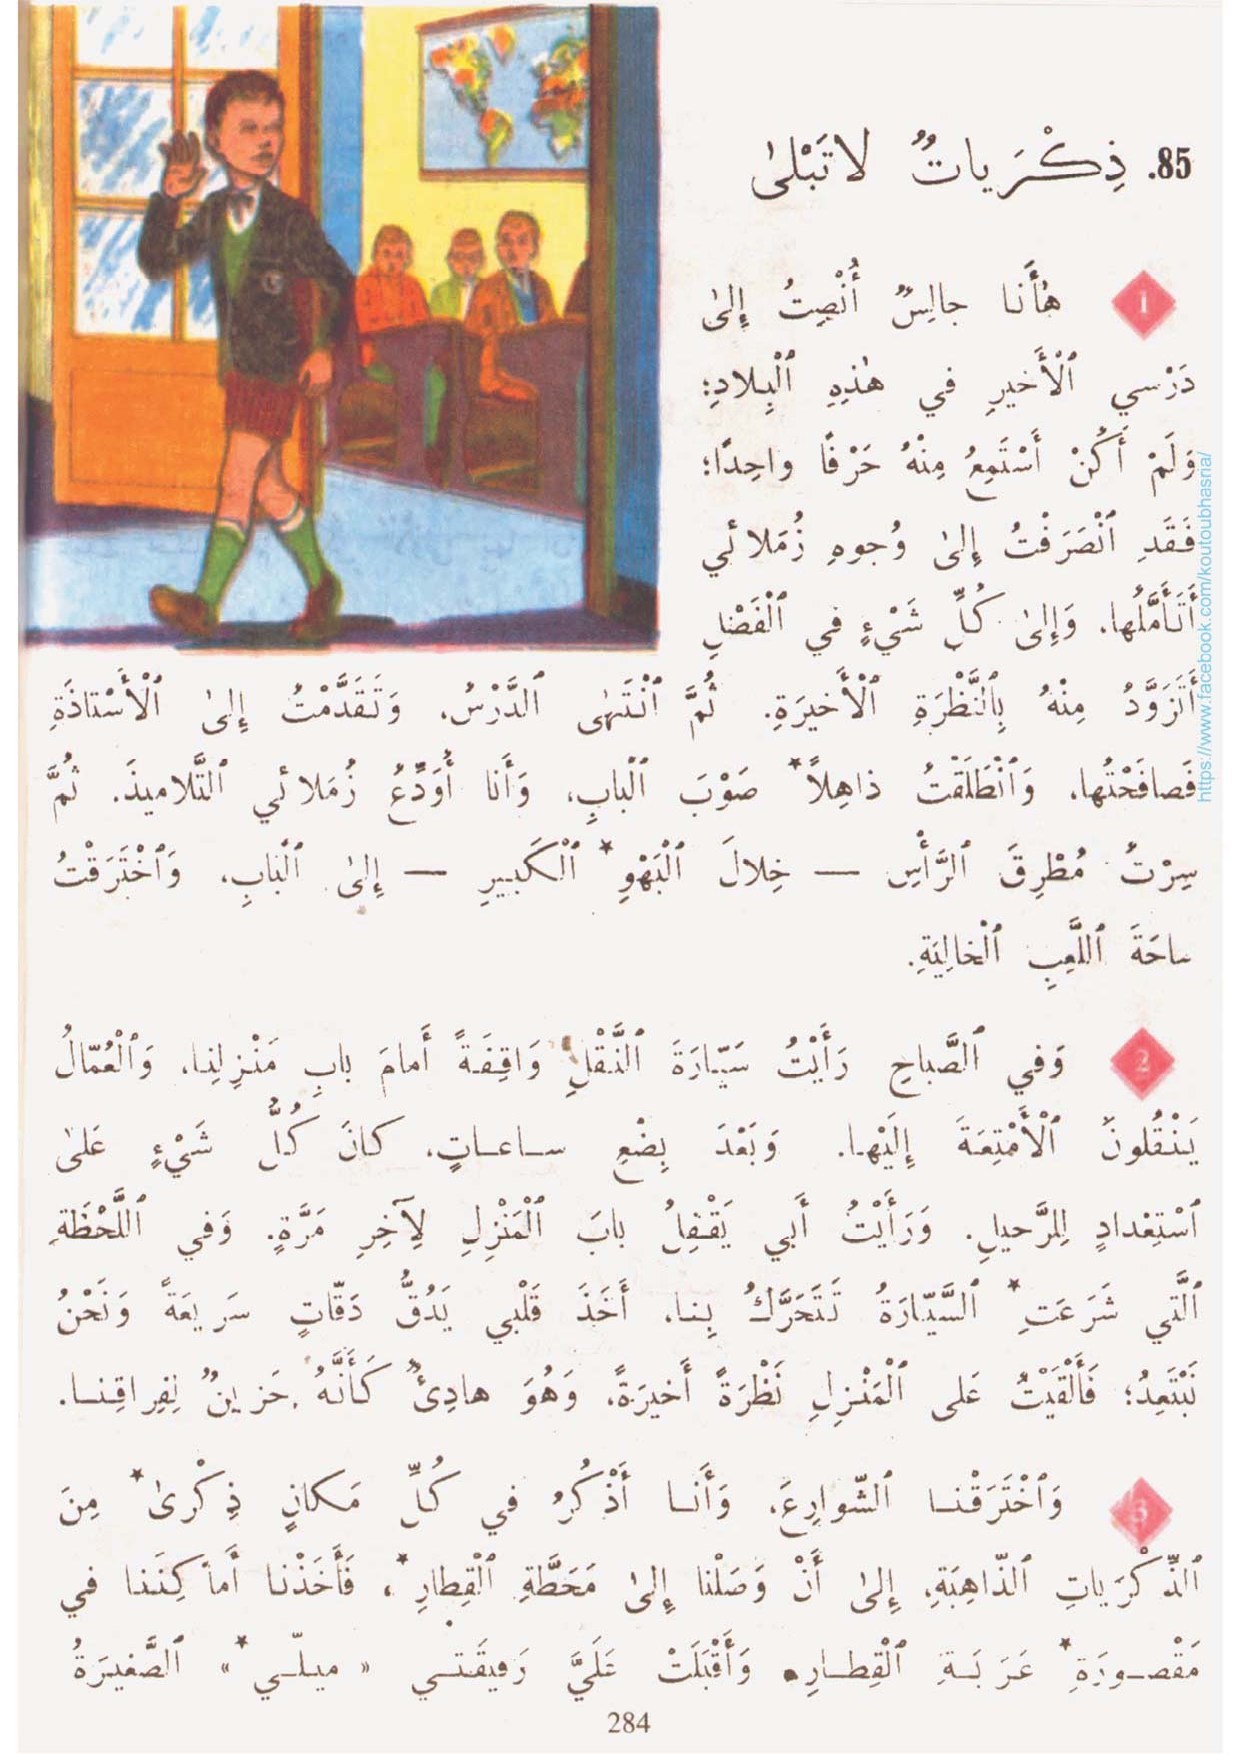 85. ذِكْرَياتٌ لا تَبْلىٰ
1 هٰأَنا جالِسٌ أُنْصِتُ إِلىٰ
دَرْسي ٱلْأَخيرِ في هٰذِهِ ٱلْبِلادِ؛
وَلَمْ أَكُنْ أَسْتَمِعُ مِنْهُ حَرْفًا واحِدًا؛
فَقَدِ ٱنْصَرَفْتُ إِلىٰ وُجوهِ زُمَلائي
أَتَأَمَّلُها، وَإِلىٰ كُلِّ شَيْءٍ في ٱلْفَصْلِ
أَتَزَوَّدُ مِنْهُ بِٱلنَّظْرَةِ ٱلْأَخيرَةِ. ثُمَّ ٱنْتَهٰى ٱلدَّرْسُ، وَتَقَدَّمْتُ إِلىٰ ٱلْأُسْتاذَةِ
فَصافَحْتُها، وَٱنْطَلَقْتُ ذاهِلاً* صَوْبَ ٱلْبابِ، وَأَنا أُوَدِّعُ زُمَلائي ٱلتَّلاميذَ. ثُمَّ
سِرْتُ مُطْرِقَ ٱلرَّأْسِ — خِلالَ ٱلْبَهْوِ* ٱلْكَبيرِ — إِلىٰ ٱلْبابِ، وَٱخْتَرَقْتُ
ساحَةَ ٱللَّعِبِ ٱلْخالِيَةِ.
2 وَفي ٱلصَّباحِ رَأَيْتُ سَيّارَةَ ٱلنَّقْلِ وَاقِفَةً أَمامَ بابِ مَنْزِلِنا، وَٱلْعُمّالُ
يَنْقُلونَ ٱلْأَمْتِعَةَ إِلَيْها. وَبَعْدَ بِضْعِ ساعاتٍ، كانَ كُلُّ شَيْءٍ عَلىٰ
ٱسْتِعْدادٍ لِلرَّحيلِ. وَرَأَيْتُ أَبي يَقْفِلُ بابَ ٱلْمَنْزِلِ لِآخِرِ مَرَّةٍ. وَفي ٱللَّحْظَةِ
ٱلَّتي شَرَعَتِ* ٱلسَّيّارَةُ تَتَحَرَّكُ بِنا، أَخَذَ قَلْبي يَدُقُّ دَقّاتٍ سَريعَةً وَنَحْنُ
نَبْتَعِدُ؛ فَأَلْقَيْتُ عَلى ٱلْمَنْزِلِ نَظْرَةً أَخيرَةً، وَهُوَ هادِئٌ كَأَنَّهُ حَزينٌ لِفِراقِنا.
3 وَٱخْتَرَقْنا ٱلشّوارِعَ، وَأَنا أَذْكُرُ في كُلِّ مَكانٍ ذِكْرىٰ* مِنَ
ٱلذِّكْرَياتِ ٱلذّاهِبَةِ، إِلىٰ أَنْ وَصَلْنا إِلىٰ مَحَطَّةِ ٱلْقِطارِ*، فَأَخَذْنا أَماكِنَنا في
مَقْصورَةِ* عَرَبَةِ ٱلْقِطارِ. وَأَقْبَلَتْ عَلَيَّ رَفيقَتي «ميلّي*» ٱلصَّغيرَةُ
284
https://www.facebook.com/koutoubhasria/